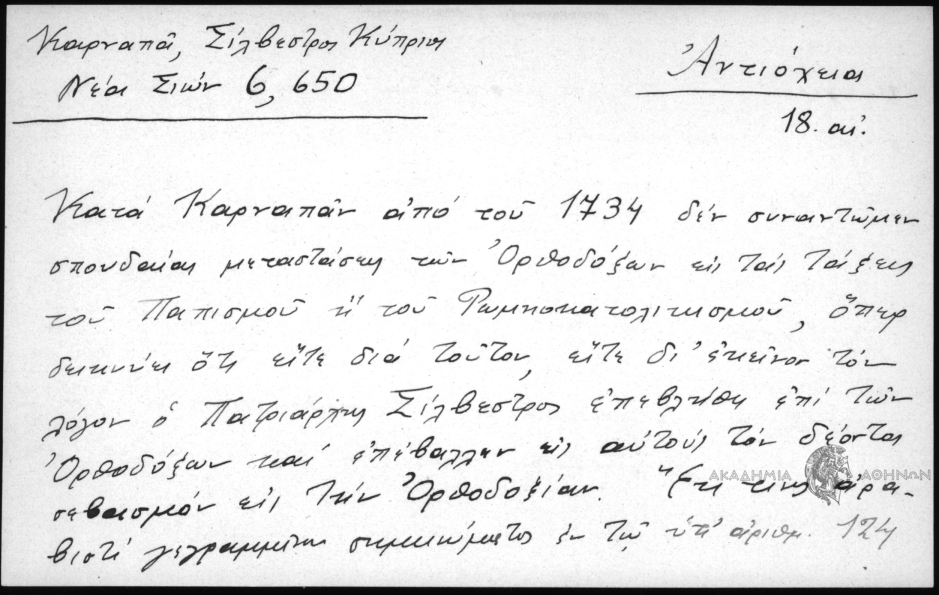 Καρναπᾶ, Σίλβεστρος Κύπριος
Νέα Σιών 6, 650
Ἀντιόχεια
18. αἰ.
Κατά Καρναπᾶν ἀπό τοῦ 1734 δέν συναντῶμεν
σπουδαίας μεταστάσεις τῶν Ὀρθοδόξων εἰς τάς τάξεις
τοῦ Παπισμοῦ ἤ τοῦ Ρωμηοκατολικισμοῦ, ὅπερ
δεικνύει ὅτι εἴτε διά τοῦτον, εἴτε δι' ἐκεῖνον τόν
λόγον ὁ Πατριάρχης Σίλβεστρος ἐπεβλήθη ἐπί τῶν
Ὀρθοδόξων καί ἐπέβαλλεν εἰς αὐτούς τόν δέοντα
σεβασμόν εἰς τήν Ὀρθοδοξίαν. Ἔκ τινος ἀρα-
βιστί γεγραμμένου σημειώματος ἐν τῷ ὑπ' ἀριθμ. 124
ΑΚΑΔΗΜΙΑ ΑΘΗΝΩΝ